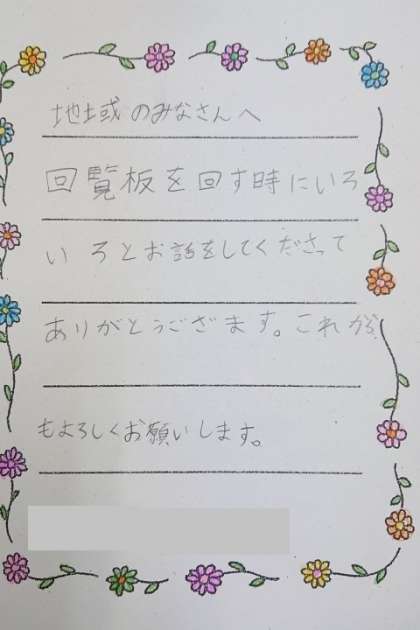 地域のみなさんへ
回覧板を回す時にいろ
いろとお話をしてくださって
ありがとうございます。これから
もよろしくお願いします。